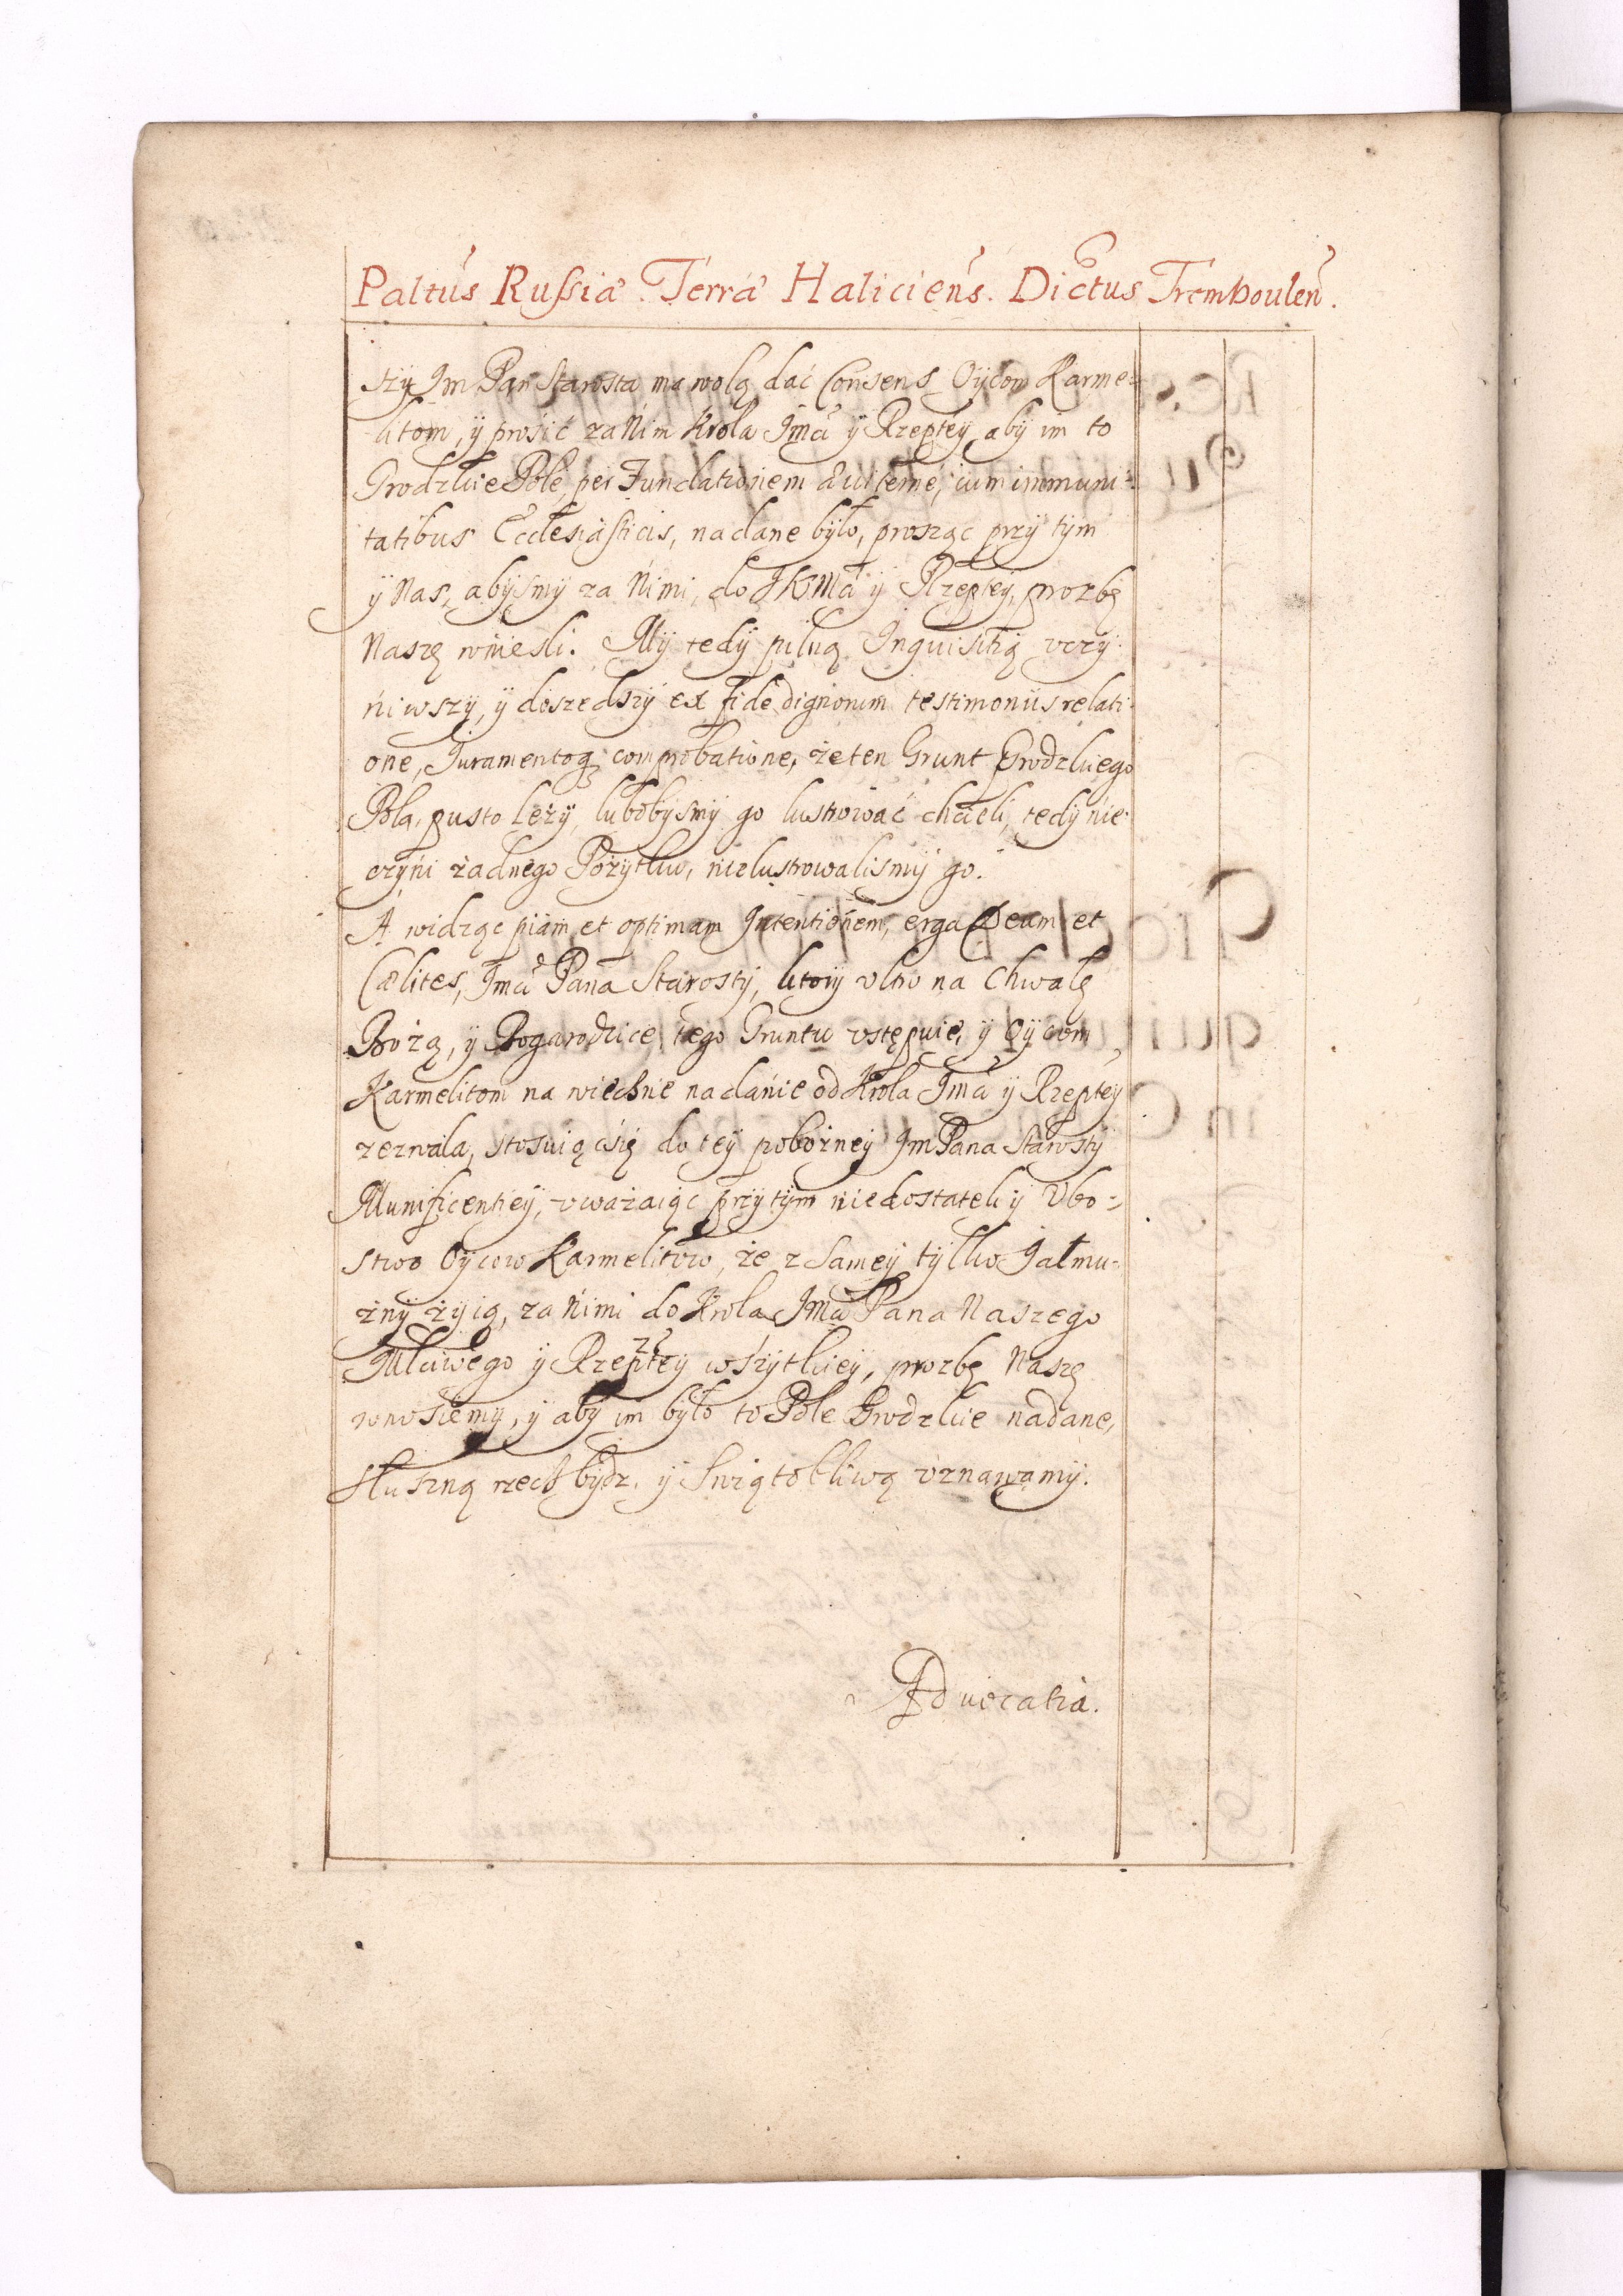 Paltus Russiæ Terræ Haliciens. Dictus Tremboulen.
szy Im Pan Starosta ma wolą dać Consens Oycow Karme=
litom, ÿ prosić za Nim Krola Jmći ÿ Rzeptey aby im to
Grodzkie Pole, per Fundationem, cum immuni=
tatibus Ecclesiasticis, nadane było, prosząc przÿ tÿm
ÿ Nas, abÿsmÿ za Nimi, do JKMći ÿ Rzeptey, prozbę
Naszę wniesli. Mÿ tedÿ pilną Inquisitią vczÿ=
niwszÿ, ÿ doszedszÿ ex fide dignorum testimoniis relati=
one, Juramentoq; comprobatione, że ten Grunt Grodzkiego
Pola, pusto leżÿ, lubobÿsmÿ go lustrowac chcieli, tedÿ nie
czÿni żadnego Pożÿtku, nielustrowalismÿ go.
A widząc piam et optimam Intentionem, erga Deum et
Cælites, Jmći Pana Starostÿ, ktorÿ vltro na Chwałę
Bożą, ÿ Bogarodzice, tego Gruntu vstępuie, ÿ Oÿcom
Karmelitom na wiecznie nadanie od Krola Jmći ÿ Rzeptey
zezwala, stosuiąc się do teÿ pobożneÿ Jm Pana Starostÿ
Munificentieÿ, vważaiąc przÿtÿm niedostatek ÿ Vbo=
stwo Oÿcow Karmelitow, że z Sameÿ tÿlko Jałmu=
żnÿ żÿią, za Nimi do Krola JMći Pana Naszego
Młciwego ÿ Rzepteÿ wszÿtkieÿ, prozbę Naszę
wnosiemy, ÿ aby im było to Pole Grodzkie nadane,
słuszną rzecz bÿdz, ÿ Swiątobliwą vznawamÿ.
Aduocatia.